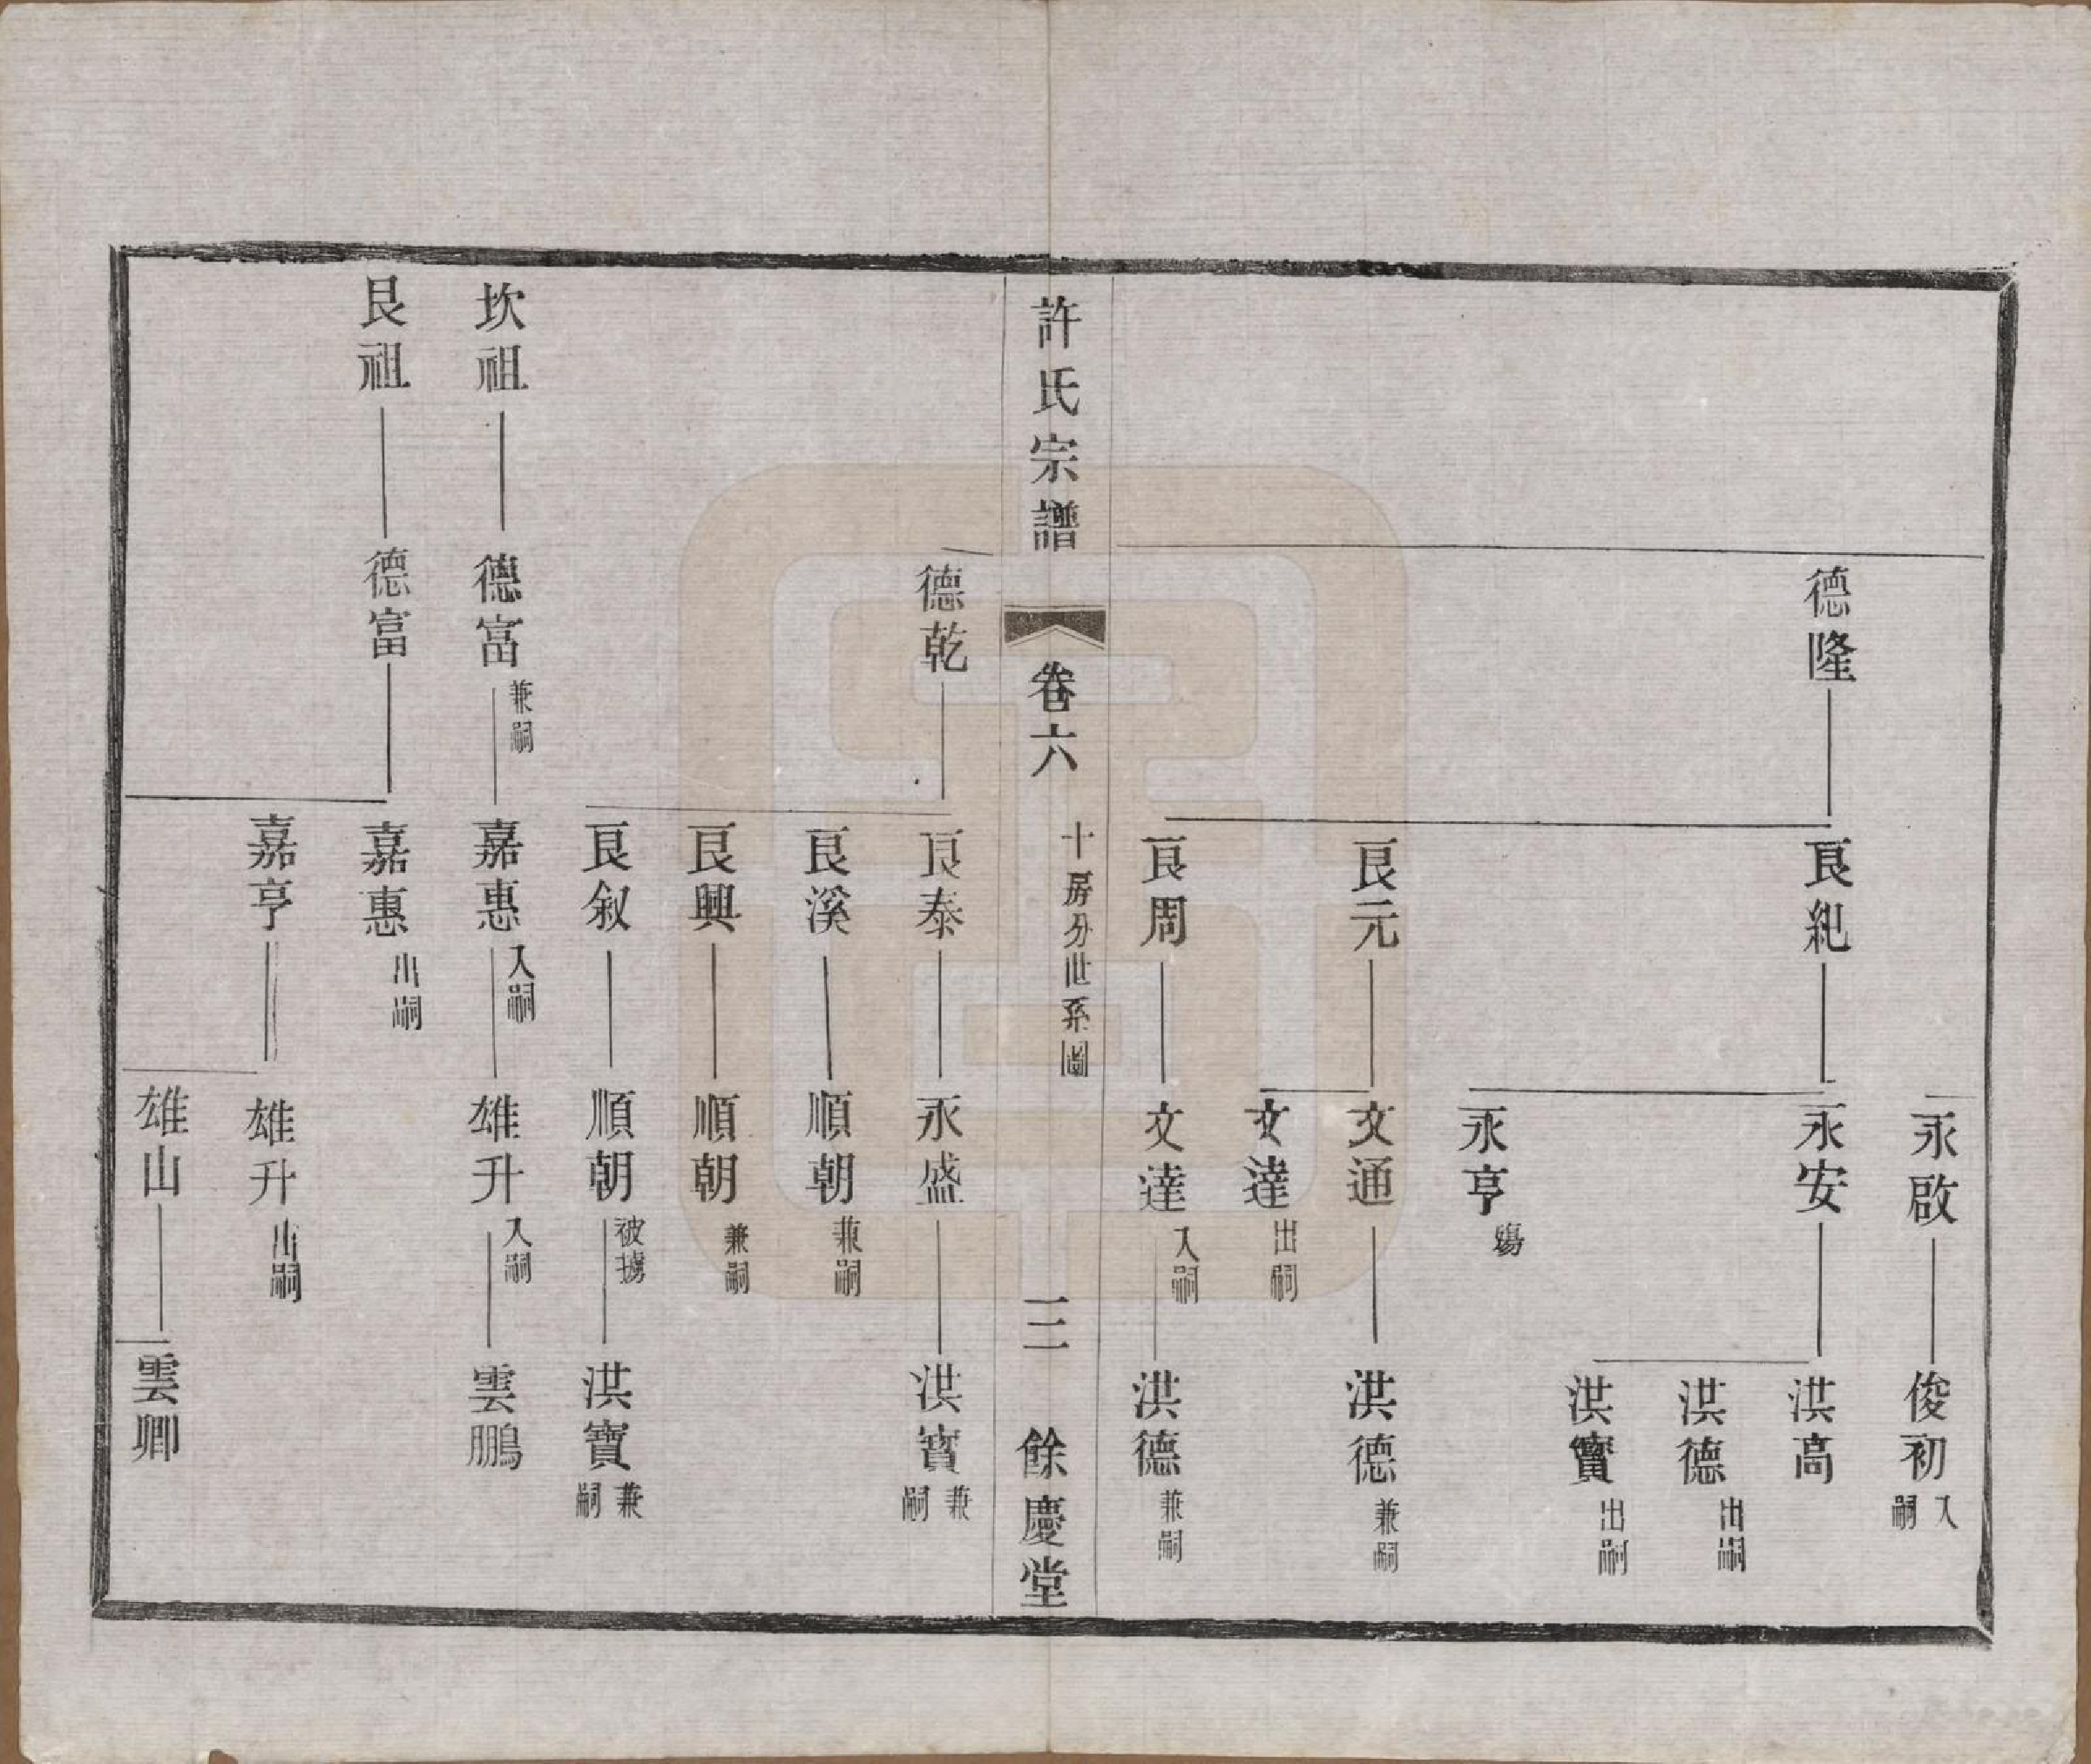 永啟 俊初 入嗣
德隆 良紀 永安 洪高
洪德 出嗣
洪寶 出嗣
永亨 殤
良元 文通 洪德 兼嗣
文達 出嗣
良周 文達 入嗣 洪德 兼嗣
許氏宗譜 卷六 十房分世系圖 三 餘慶堂
德乾 良泰 永盛 洪寶 兼嗣
良溪 順朝 兼嗣
良興 順朝 兼嗣
良叙 順朝 被擄 洪寶 兼嗣
坎祖 德富 兼嗣 嘉惠 入嗣 雄升 入嗣 雲鵬
艮祖 德富 嘉惠 出嗣
嘉亨 雄升 出嗣
雄山 雲卿